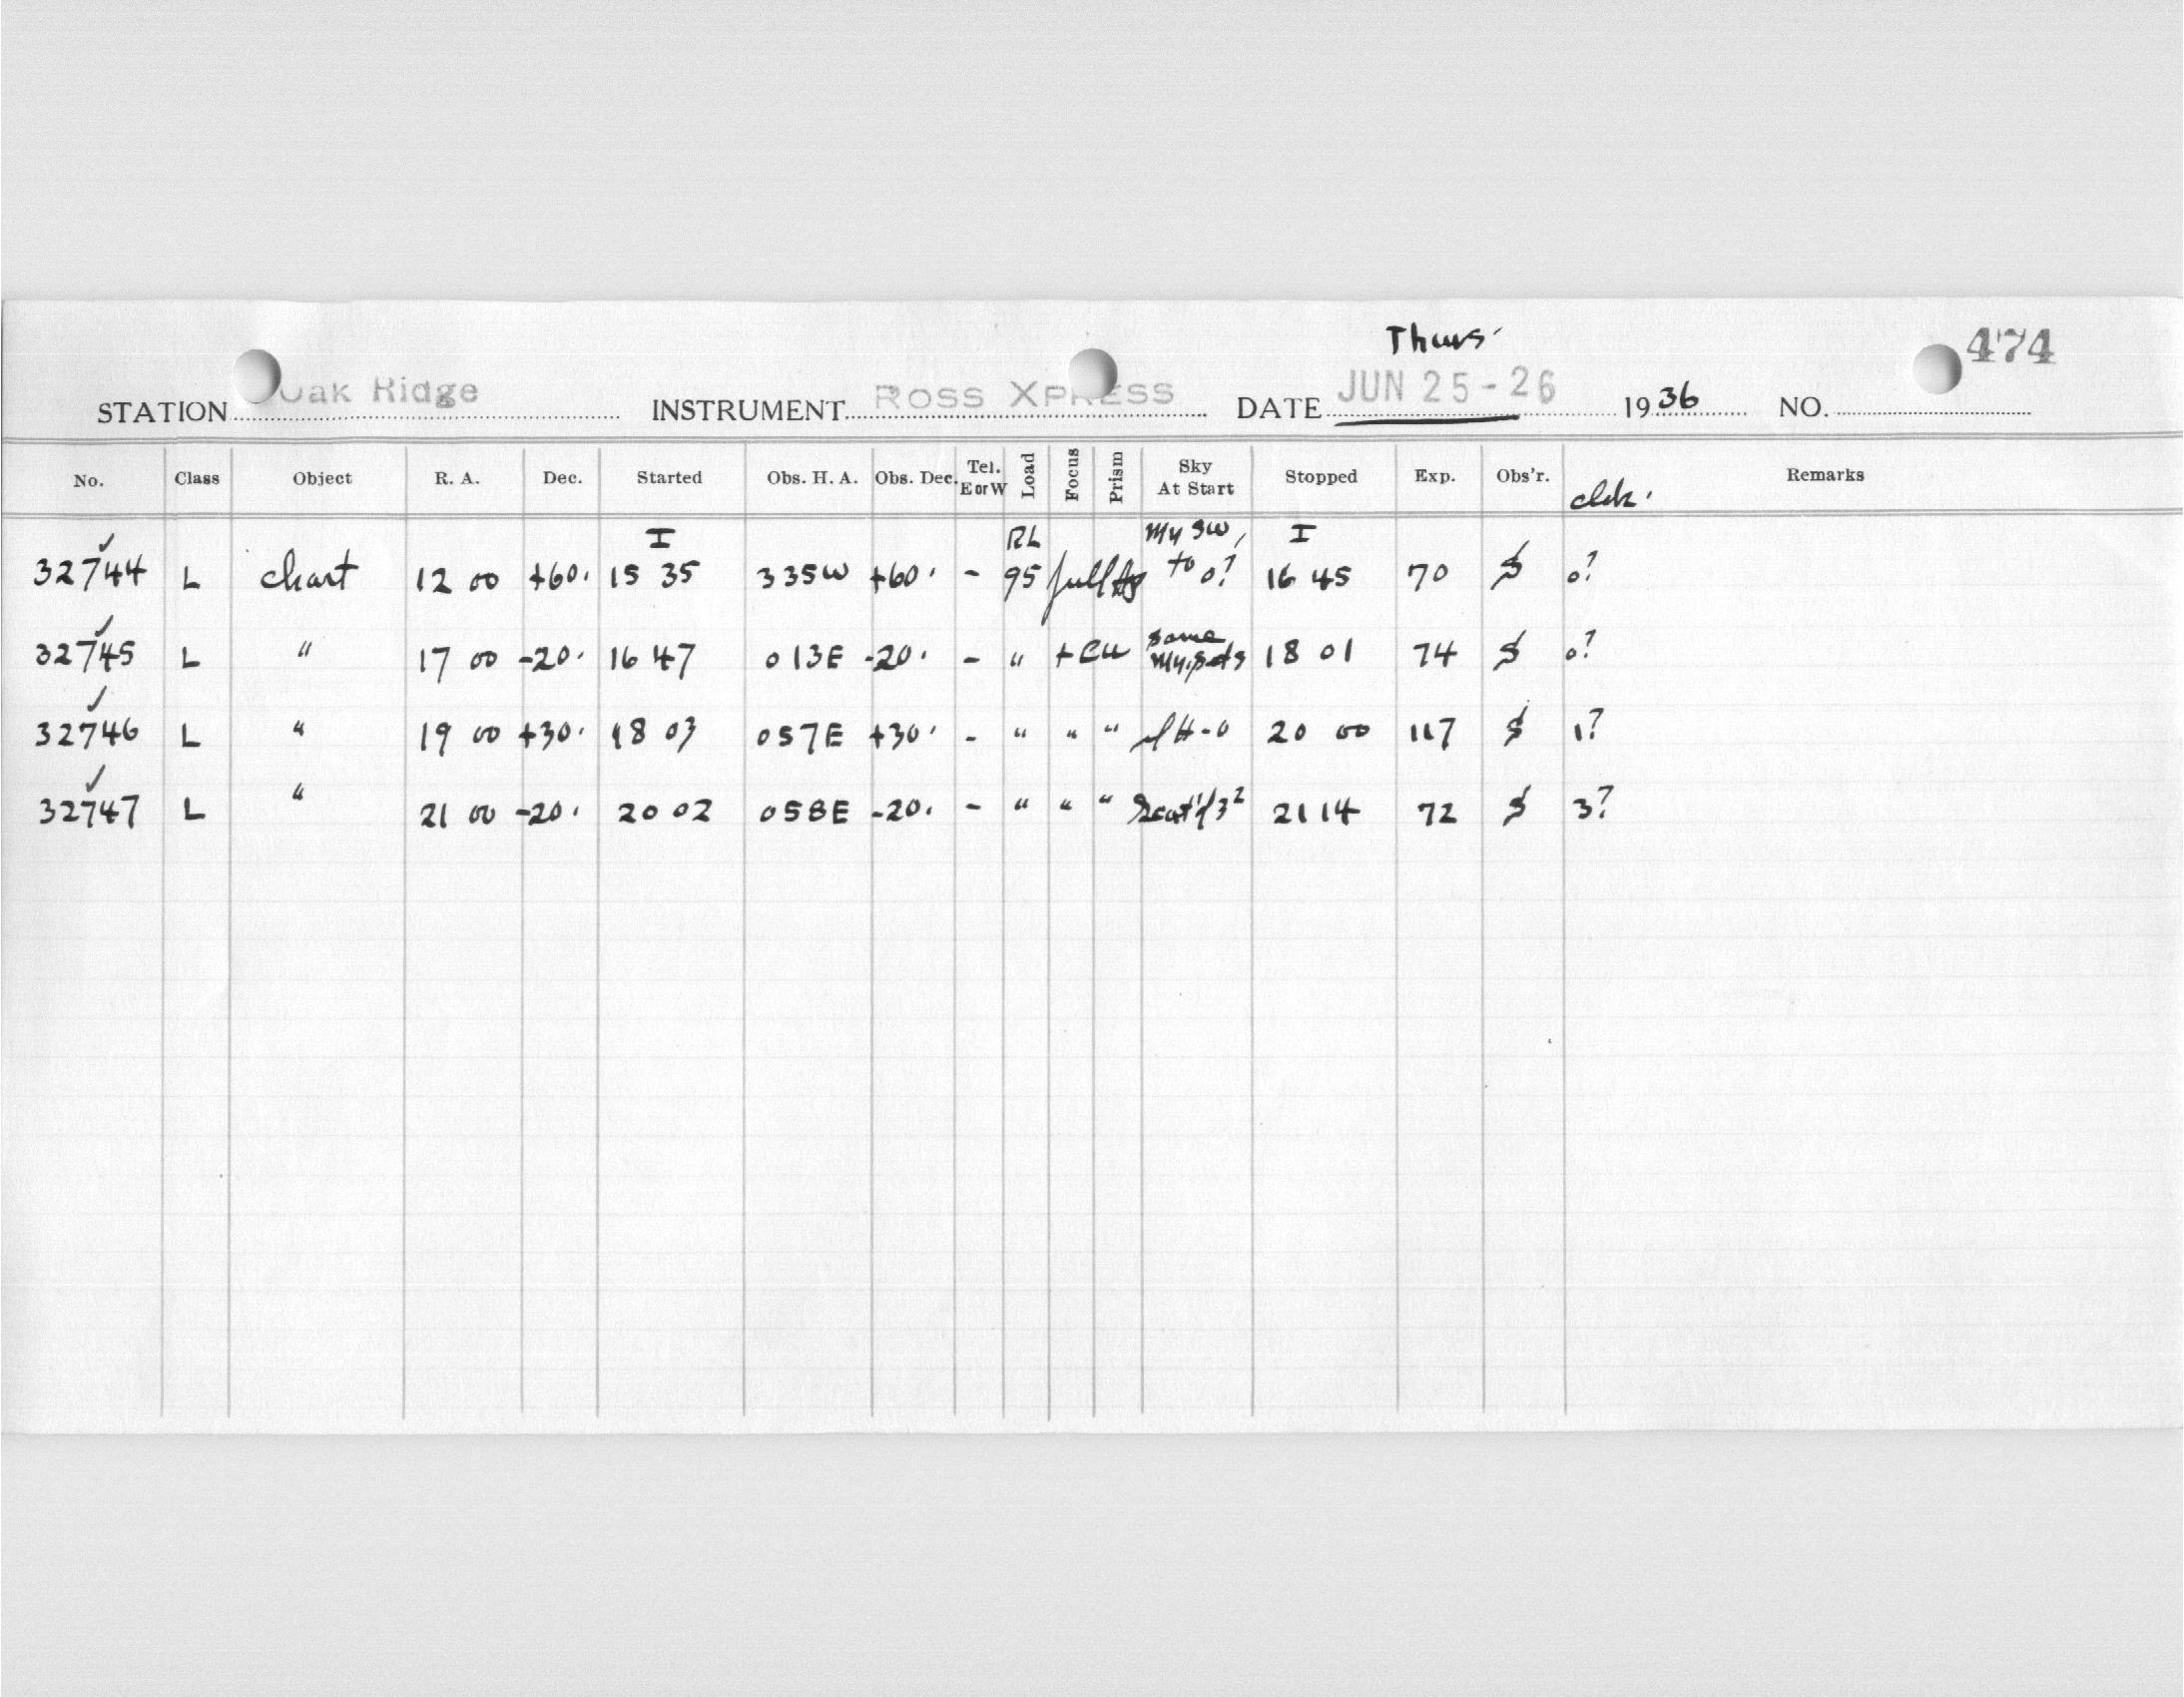 Thurs.
474
STATION Oak Ridge INSTRUMENT ROSS XPRESS DATE JUN 25-26 1936 NO.
No. Class Object R. A. Dec. Started Obs. H. A. Obs. Dec. Tel. E or W Load Focus Prism Sky At Start Stopped Exp. Obs'r. clck. Remarks
I RL My SW, I
32744 ✓ L chart 12 00 +60. 15 35 335W +60. - 95 full to 0? 16 45 70 $ 0?
32745 ✓ L " 17 00 -20. 16 47 013E -20. - " + same 18 01 74 $ 0?
32746 ✓ L " 19 00 +30. 18 03 057E +30. - " " " 20 00 117 $ 1?
32747 ✓ L " 21 00 -20. 20 02 058E -20. - " " " Scat'd 3² 21 14 72 $ 3?